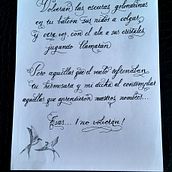 Volverán las oscuras golondrinas
en tu balcón sus nidos a colgar
Y otra vez, con el ala a sus cristales
jugando llamarán
Pero aquellas que el vuelo refrenaban
tu hermosura y mi dicha al contemplar
aquellas que aprendieron nuestros nombres...
Esas... ¡no volverán!